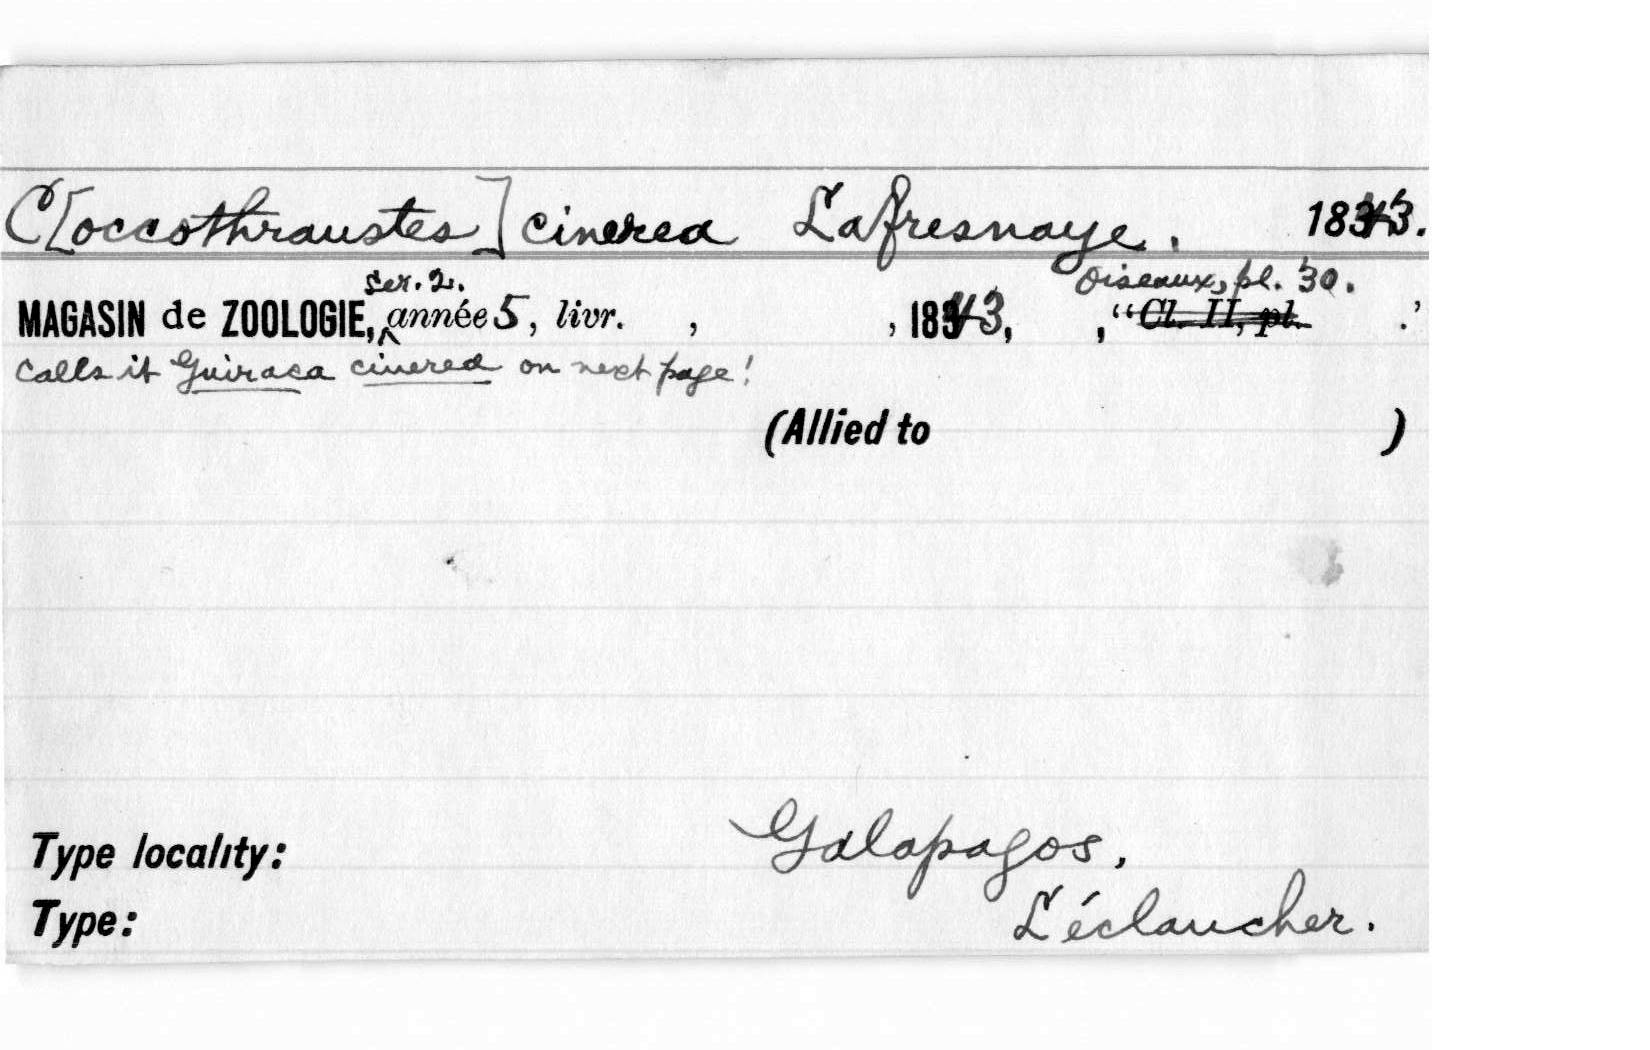 C[occothraustes] cinerea Lafresnaye. 1843.
Ser. 2. Oiseaux, pl. 30.
MAGASIN de ZOOLOGIE, année 5, livr. , , 1843, , “Cl. II, pl. .’
Calls it Guiraca cinerea on next page!
(Allied to )
Type locality: Galapagos,
Type: L'éclaucher.